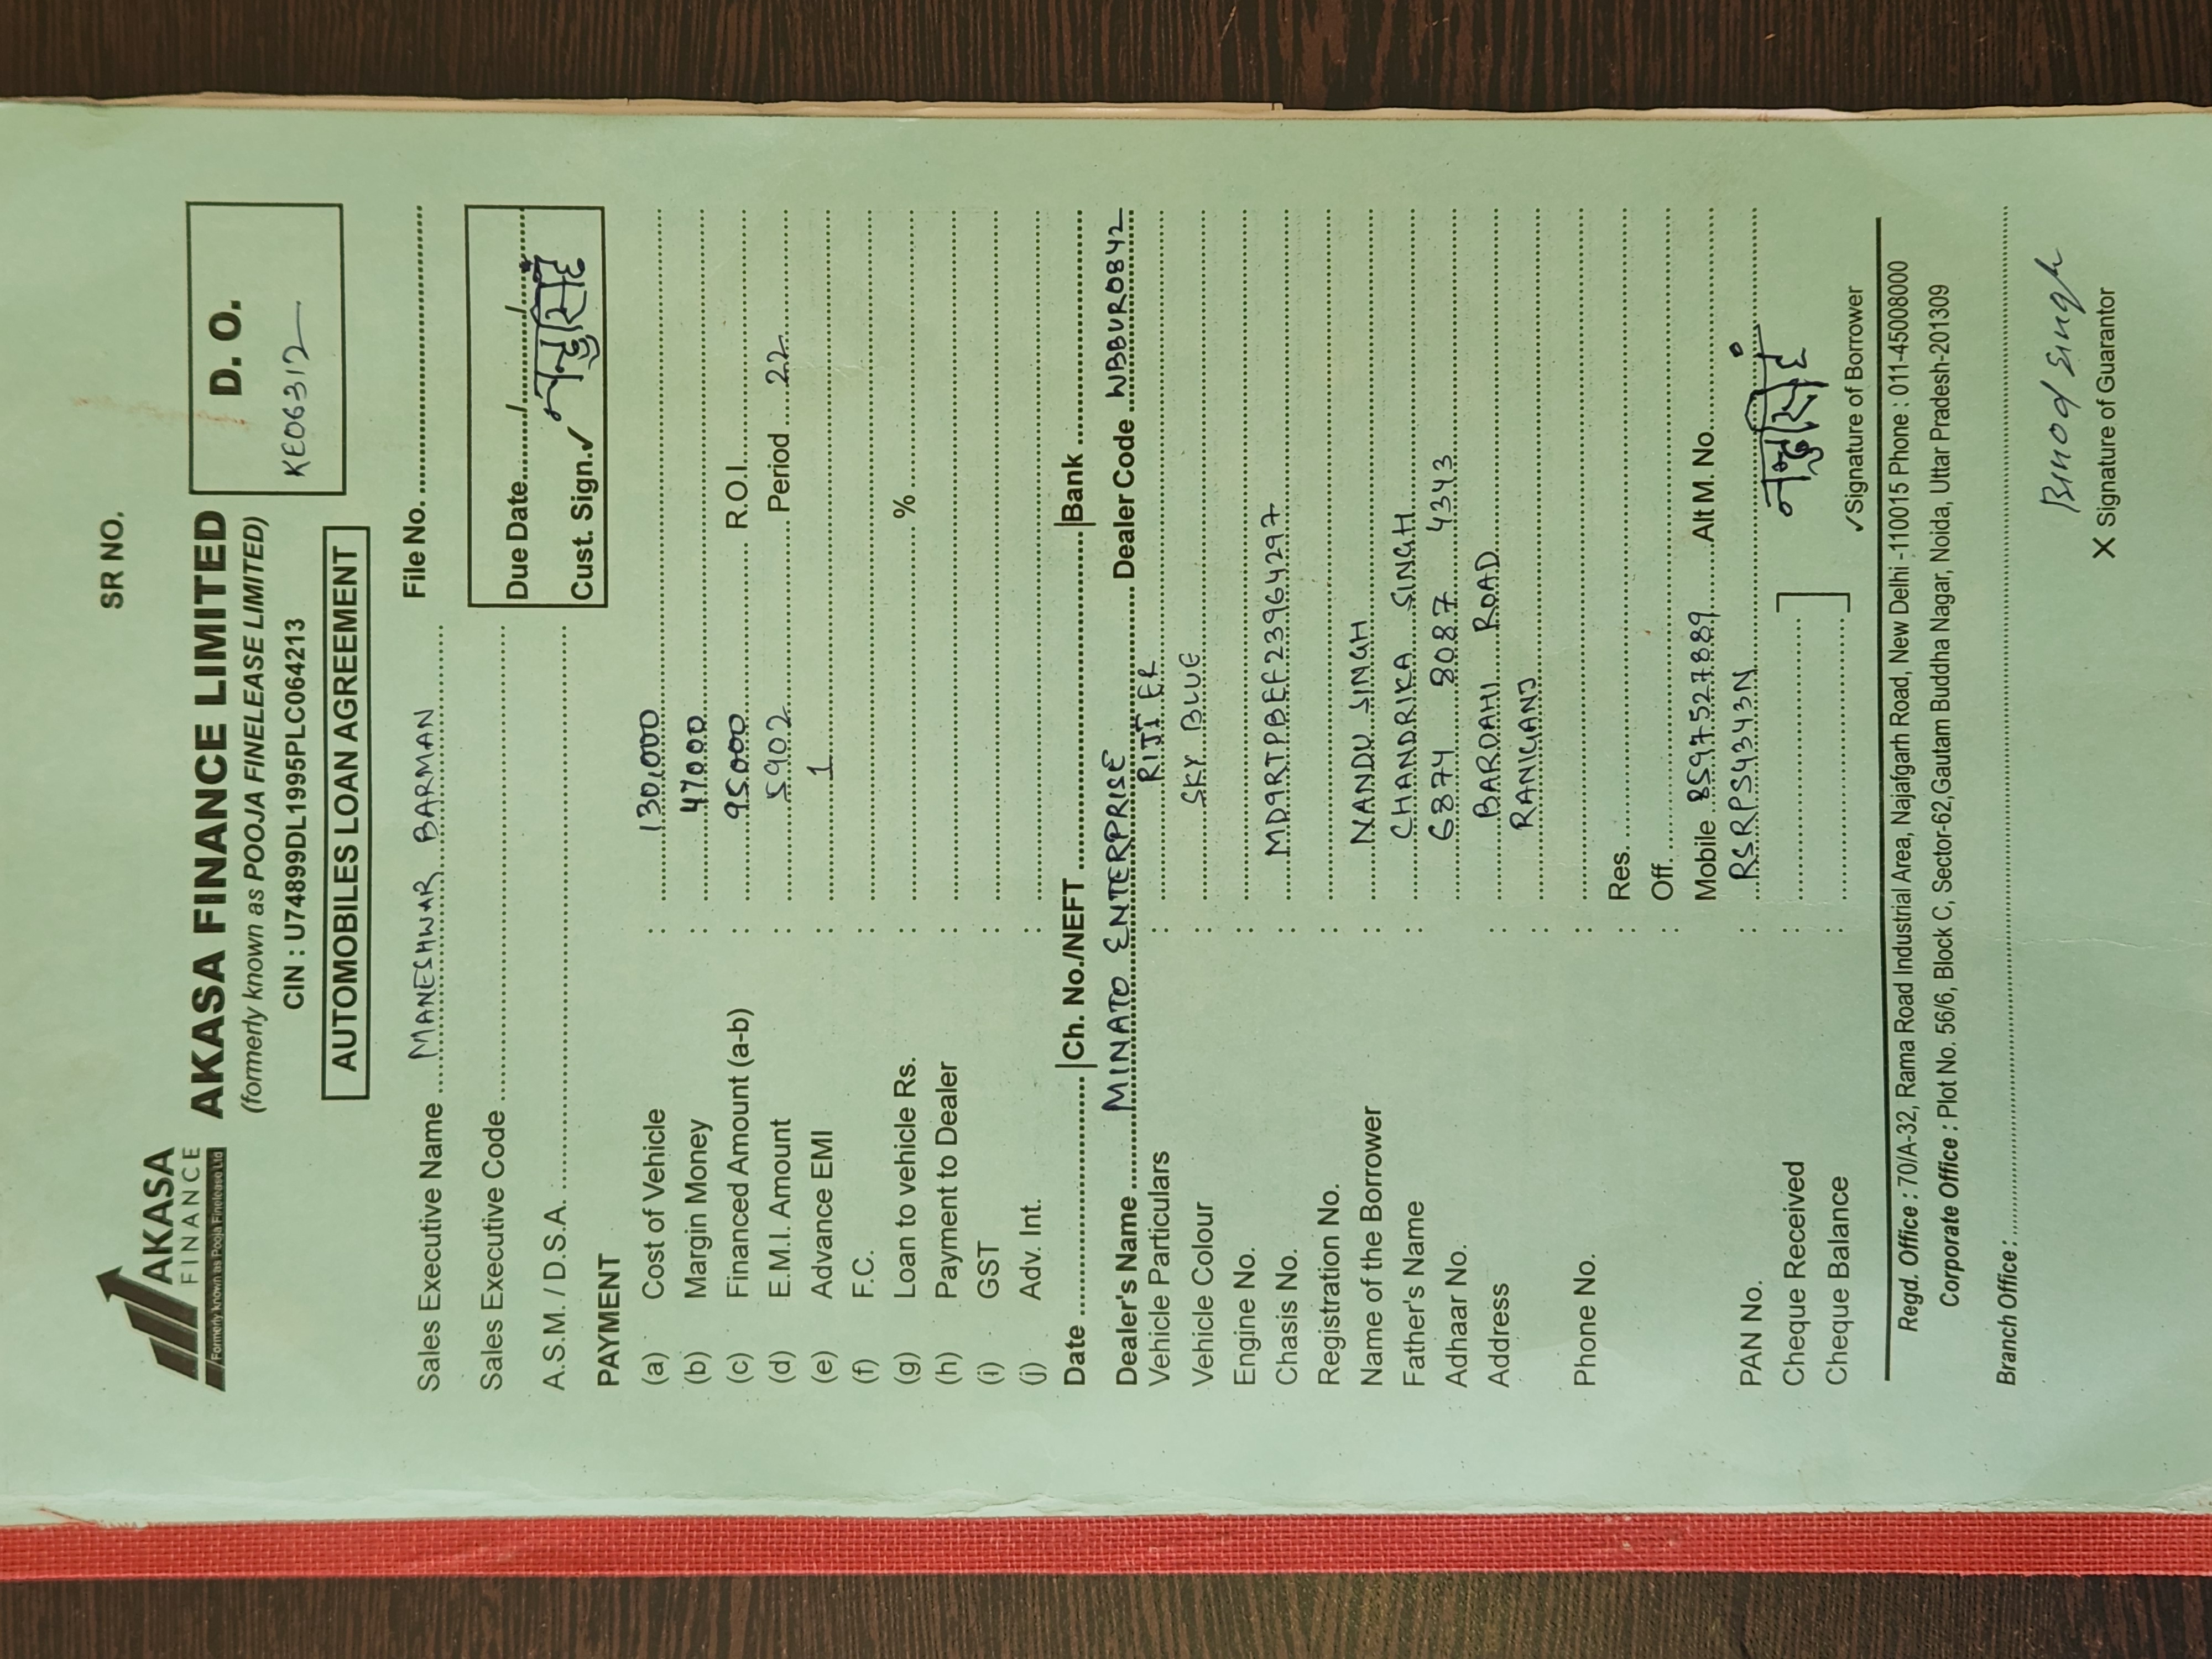 SR NO.
AKASA
FINANCE
Formerly known as Pooja Finelease Ltd
AKASA FINANCE LIMITED
(formerly known as POOJA FINELEASE LIMITED)
CIN : U74899DL1995PLC064213
D. O.
KE06312
AUTOMOBILES LOAN AGREEMENT
Sales Executive Name MANESHWAR BARMAN
File No.
Sales Executive Code
Due Date / /
A.S.M. / D.S.A.
Cust. Sign.✓ नन्दुसिंह
PAYMENT
(a) Cost of Vehicle : 130,000
(b) Margin Money : 47000
(c) Financed Amount (a-b) : 95000 R.O.I.
(d) E.M.I. Amount : 5902 Period 22
(e) Advance EMI : 1
(f) F.C. :
(g) Loan to vehicle Rs. : %
(h) Payment to Dealer :
(i) GST :
(j) Adv. Int. :
Date |Ch. No./NEFT |Bank
Dealer's Name MINATO ENTERPRISE Dealer Code WBBUR0842
Vehicle Particulars :
Vehicle Colour : SKY BLUE
Engine No. :
Chasis No. : MD9RTPBEF23964297
Registration No. :
Name of the Borrower : NANDU SINGH
Father's Name : CHANDRIKA SINGH
Adhaar No. : 6874 8087 4343
Address : BARDAHI ROAD
: RANIGANJ
Phone No. :
: Res.
: Off.
Mobile 8597527889 Alt M. No.
PAN No. : RSRPS4343N
Cheque Received :
Cheque Balance :
नन्दुसिंह
✓Signature of Borrower
Regd. Office : 70/A-32, Rama Road Industrial Area, Najafgarh Road, New Delhi -110015 Phone : 011-45008000
Corporate Office : Plot No. 56/6, Block C, Sector-62,Gautam Buddha Nagar, Noida, Uttar Pradesh-201309
Branch Office :
Binod Singh
X Signature of Guarantor